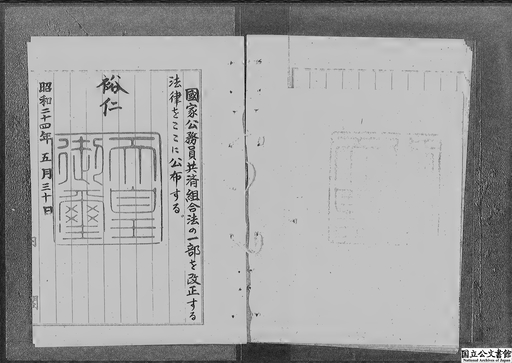 國家公務員共済組合法の一部を改正する
法律をここに公布する。
裕仁
天皇
御璽
昭和二十四年五月三十日
国立公文書館
National Archives of Japan